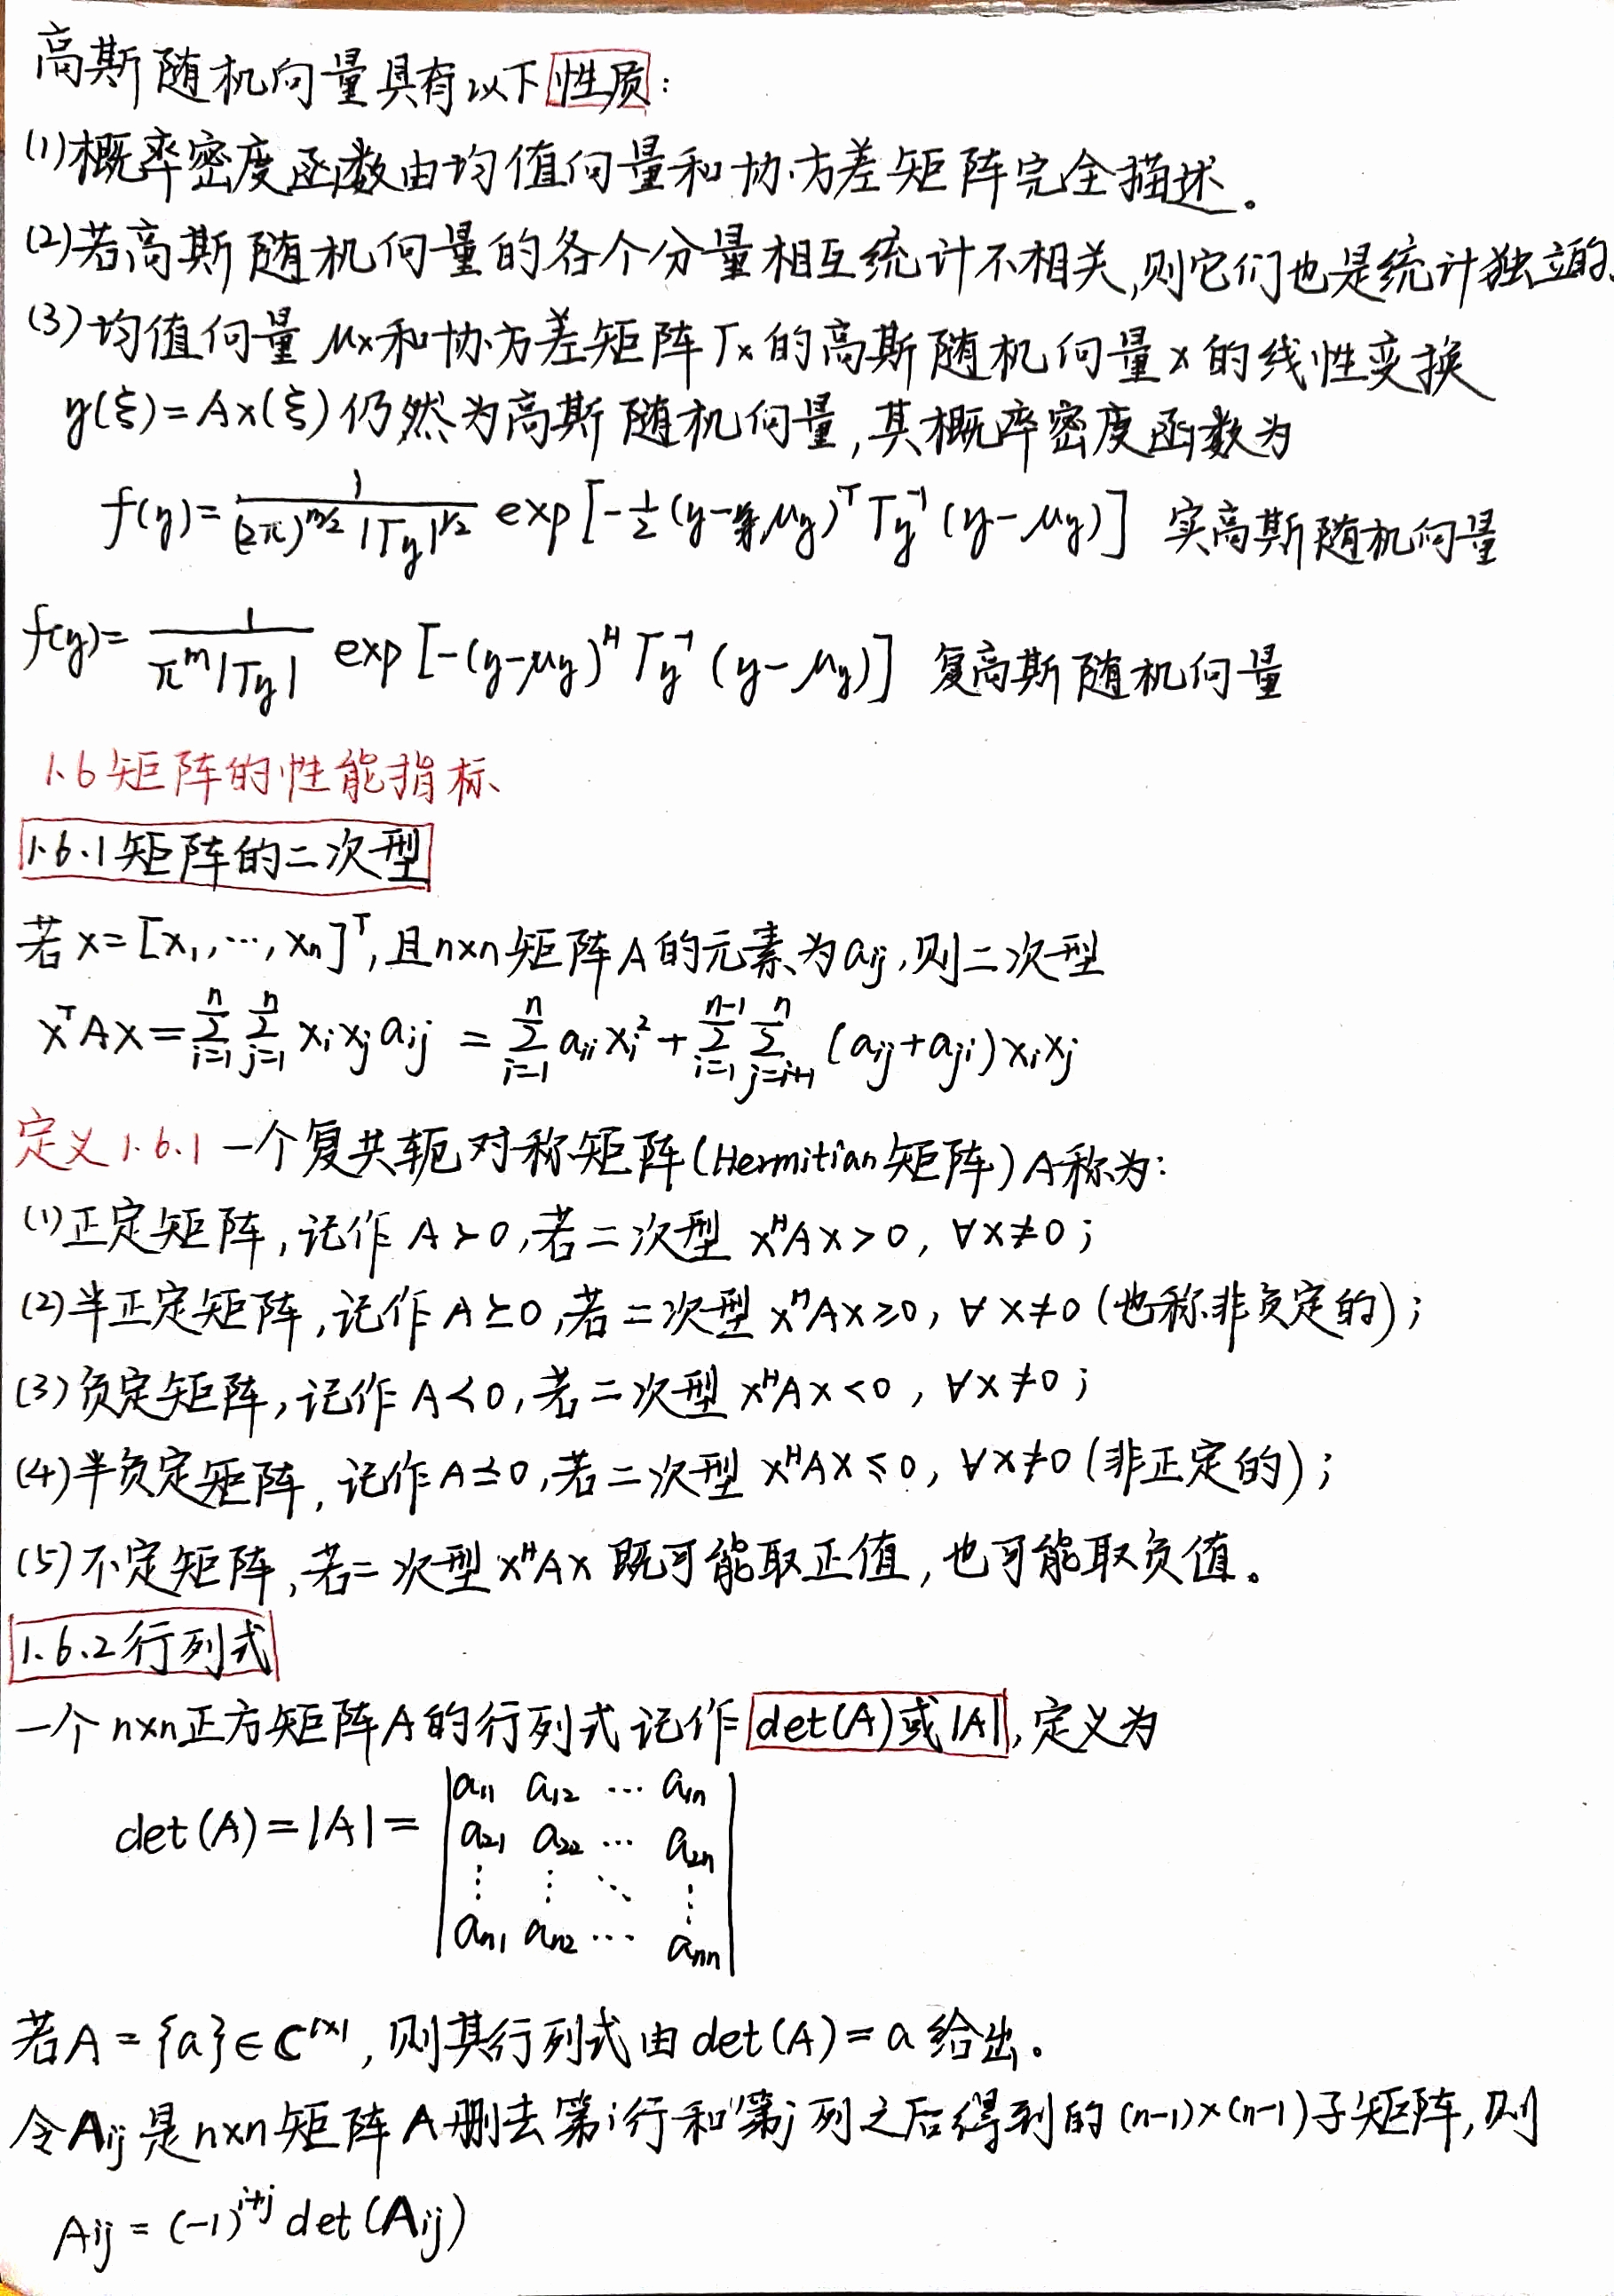 高斯随机向量具有以下性质:
(1)概率密度函数由均值向量和协方差矩阵完全描述。
(2)若高斯随机向量的各个分量相互统计不相关,则它们也是统计独立的.
(3)均值向量 μx和协方差矩阵Γx的高斯随机向量x的线性变换
y(ξ)=Ax(ξ)仍然为高斯随机向量,其概率密度函数为
f(y)= 1/((2π)^{m/2} |Γy|^{1/2}) exp[-1/2 (y-μy)^T Γy^{-1} (y-μy)] 实高斯随机向量
f(y)= 1/(π^m|Γy|) exp[-(y-μy)^H Γy^{-1} (y-μy)] 复高斯随机向量
1.6矩阵的性能指标
1.6.1矩阵的二次型
若x=[x₁,…,xₙ]^T,且n×n矩阵A的元素为aij,则二次型
x^T Ax=∑_{i=1}^{n} ∑_{j=1}^{n} xixjaij = ∑_{i=1}^{n} aiixi² + ∑_{i=1}^{n-1} ∑_{j=i+1}^{n} (aij+aji)xixj
定义1.6.1 一个复共轭对称矩阵(Hermitian矩阵)A称为:
(1)正定矩阵,记作A≻0,若二次型 x^H Ax>0, ∀x≠0;
(2)半正定矩阵,记作A⪰0,若二次型 x^H Ax≥0, ∀x≠0(也称非负定的);
(3)负定矩阵,记作A≺0,若二次型 x^H Ax<0, ∀x≠0;
(4)半负定矩阵,记作A⪯0,若二次型 x^H Ax≤0, ∀x≠0(非正定的);
(5)不定矩阵,若二次型x^H Ax 既可能取正值,也可能取负值。
1.6.2行列式
一个n×n正方矩阵A的行列式记作det(A)或|A|,定义为
det(A)=|A|=
a₁₁ a₁₂ ⋯ a₁ₙ
a₂₁ a₂₂ ⋯ a₂ₙ
⋮ ⋮ ⋱ ⋮
aₙ₁ aₙ₂ ⋯ aₙₙ
若A={a}∈C^{1×1},则其行列式由det(A)=a给出。
令Aij是n×n矩阵A删去第i行和第j列之后得到的(n-1)×(n-1)子矩阵,则
Aij=(-1)^{i+j} det(Aij)